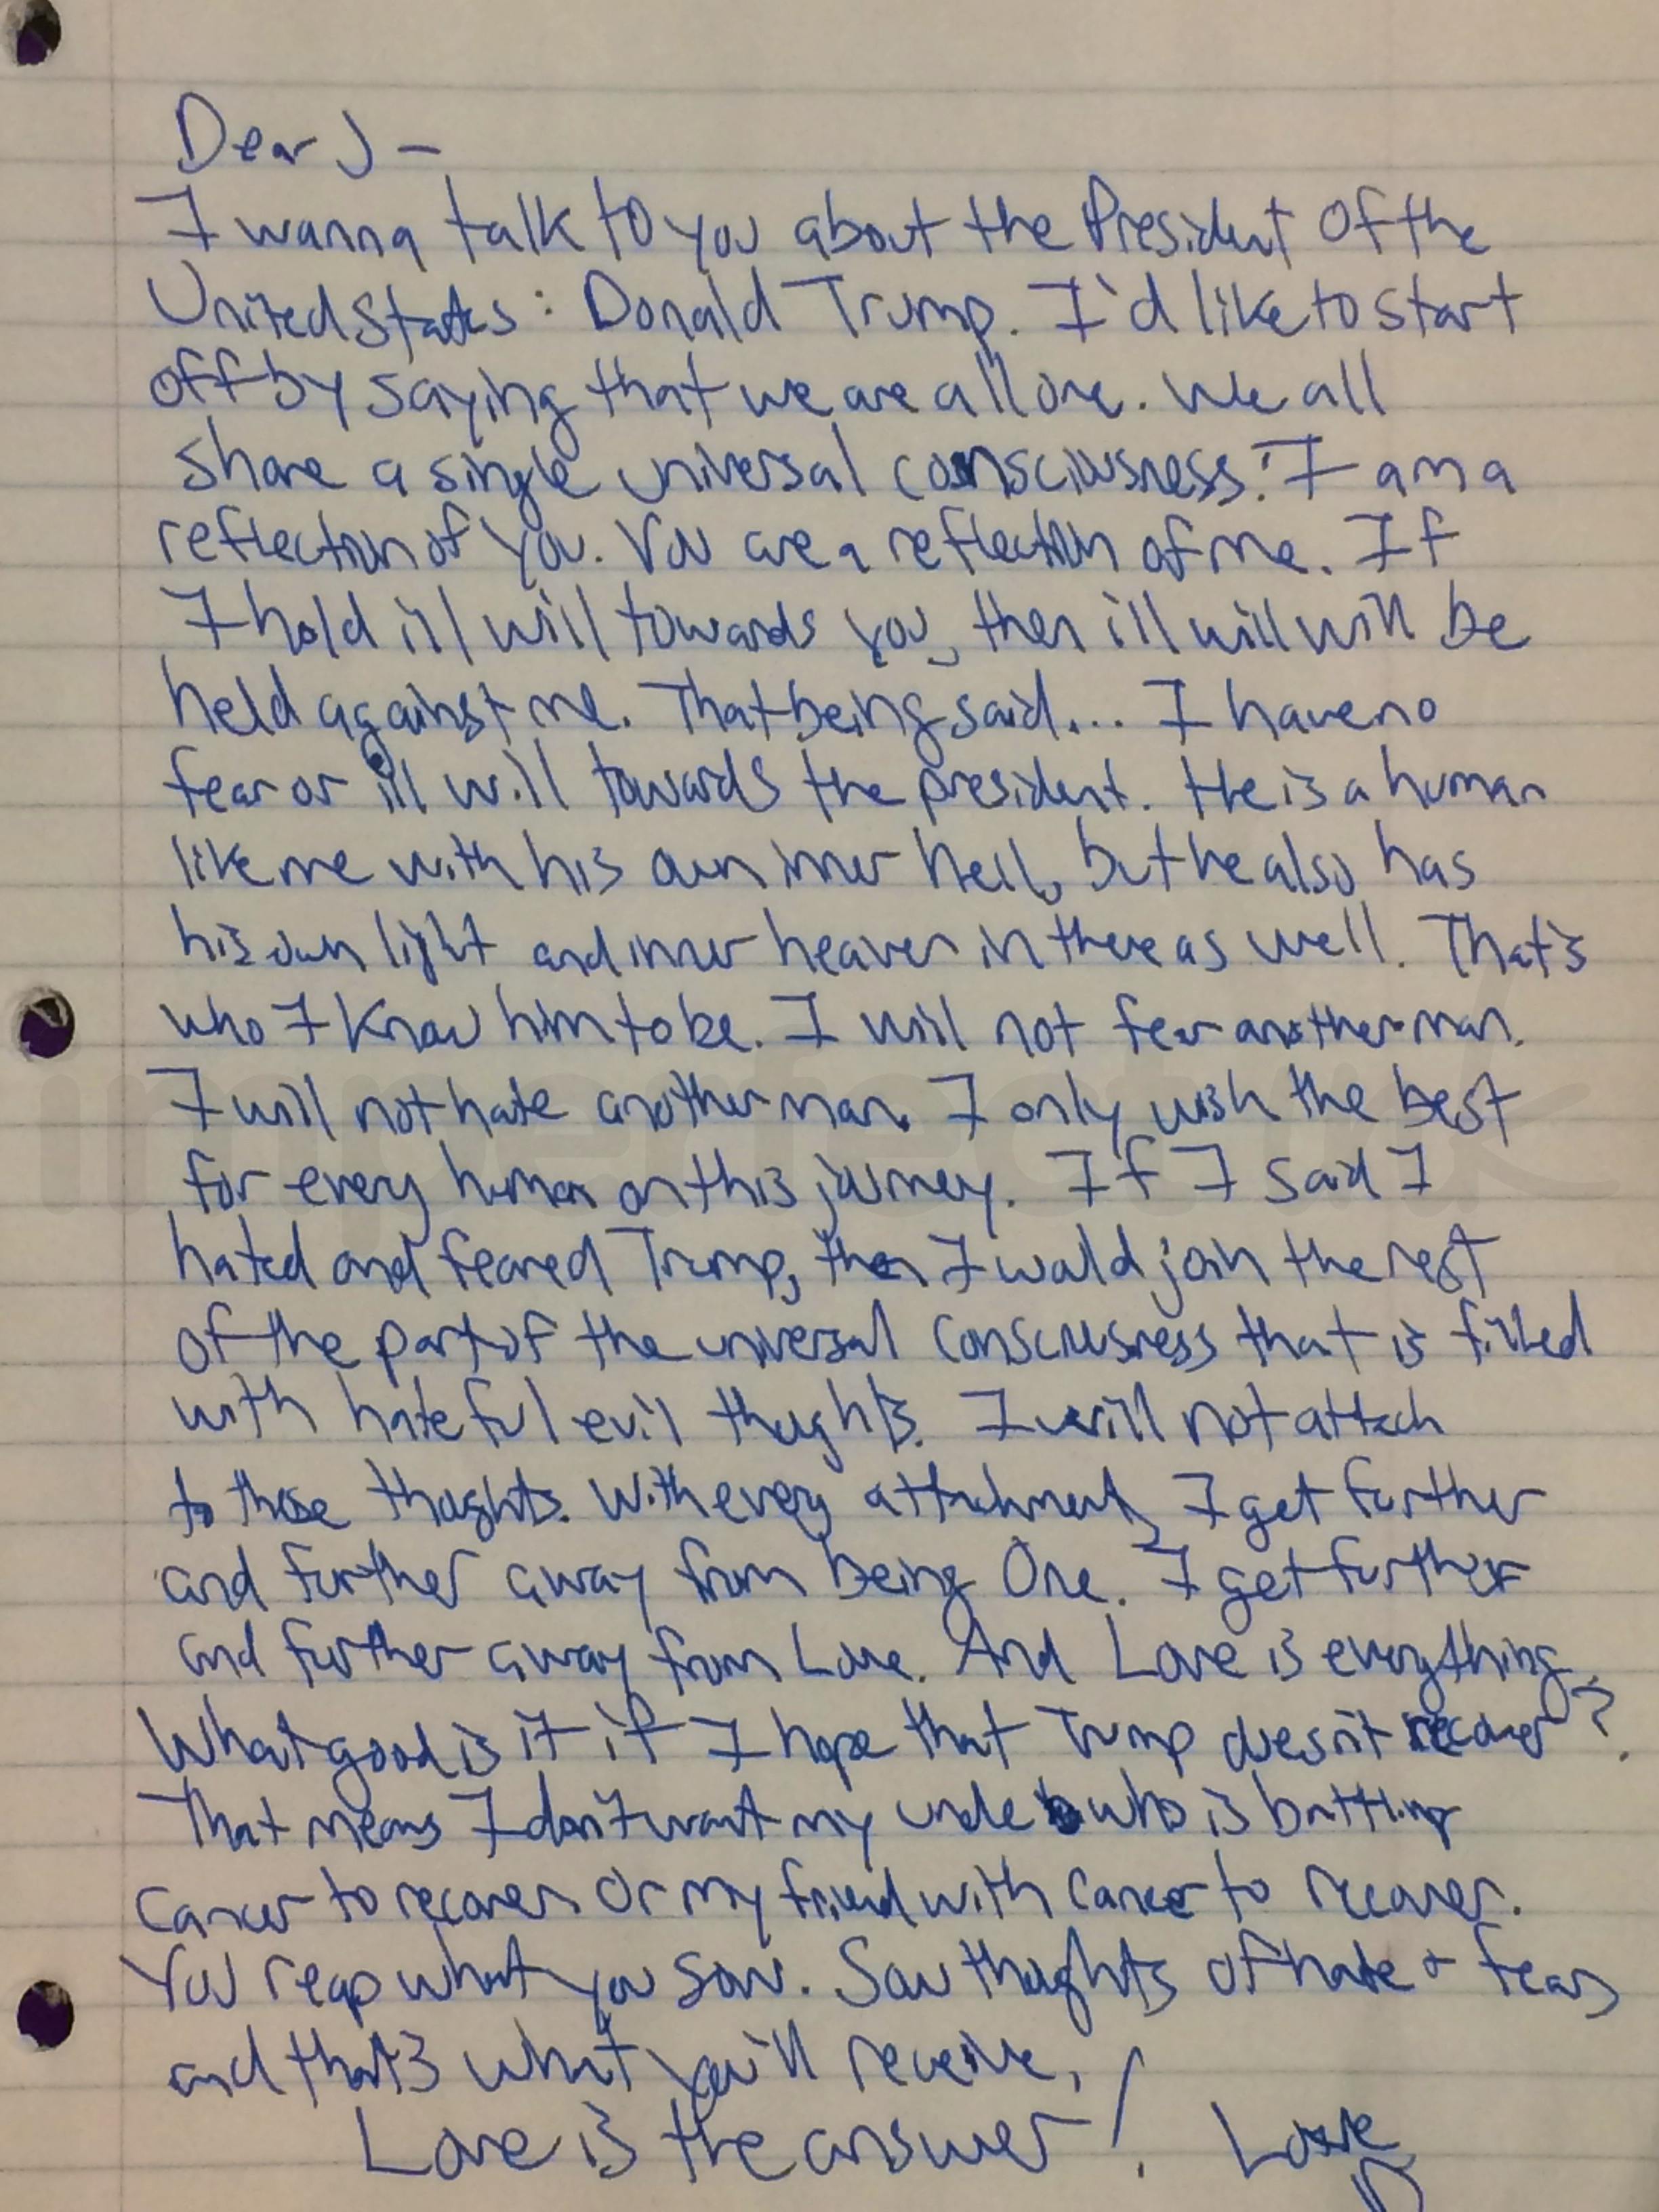 Dear J -
I wanna talk to you about the President Of the
United States: Donald Trump. I'd like to start
off by saying that we are all one. We all
share a single universal consciousness. I am a
reflection of you. You are a reflection of me. If
I hold ill will towards you, then ill will will be
held against me. That being said... I have no
fear or ill will towards the president. He is a human
like me with his own inner hell, but he also has
his own light and inner heaven in there as well. That's
who I know him to be. I will not fear another man.
I will not hate another man. I only wish the best
for every human on this journey. If I said I
hated and feared Trump, then I would join the rest
of the part of the universal consciousness that is filled
with hateful evil thoughts. I will not attach
to those thoughts. With every attachment, I get further
and further away from being One. I get further
and further away from Love. And Love is everything.
What good is it if I hope that Trump doesn't recover?
That means I don't want my uncle who is battling
cancer to recover or my friend with cancer to recover.
You reap what you sow. Sow thoughts of hate + fear,
and that's what you'll receive.
Love is the answer! Love
D
imperfect